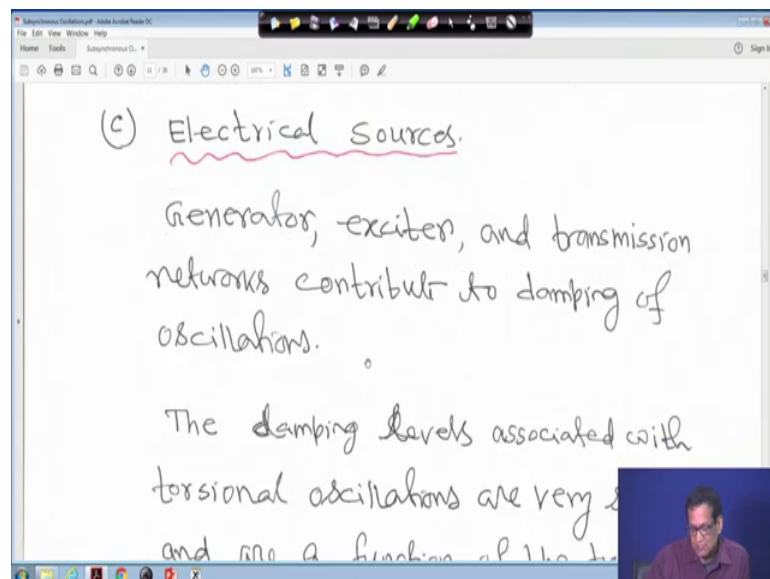 Subsynchronous Oscillations.pdf - Adobe Acrobat Reader DC
File Edit View Window Help
Home Tools Subsynchronous O... ×
Sign I
11 / 26
(C) Electrical Sources.
Generator, exciter, and transmission
networks contribute to damping of
oscillations.
The damping levels associated with
torsional oscillations are very s
and are a function of the